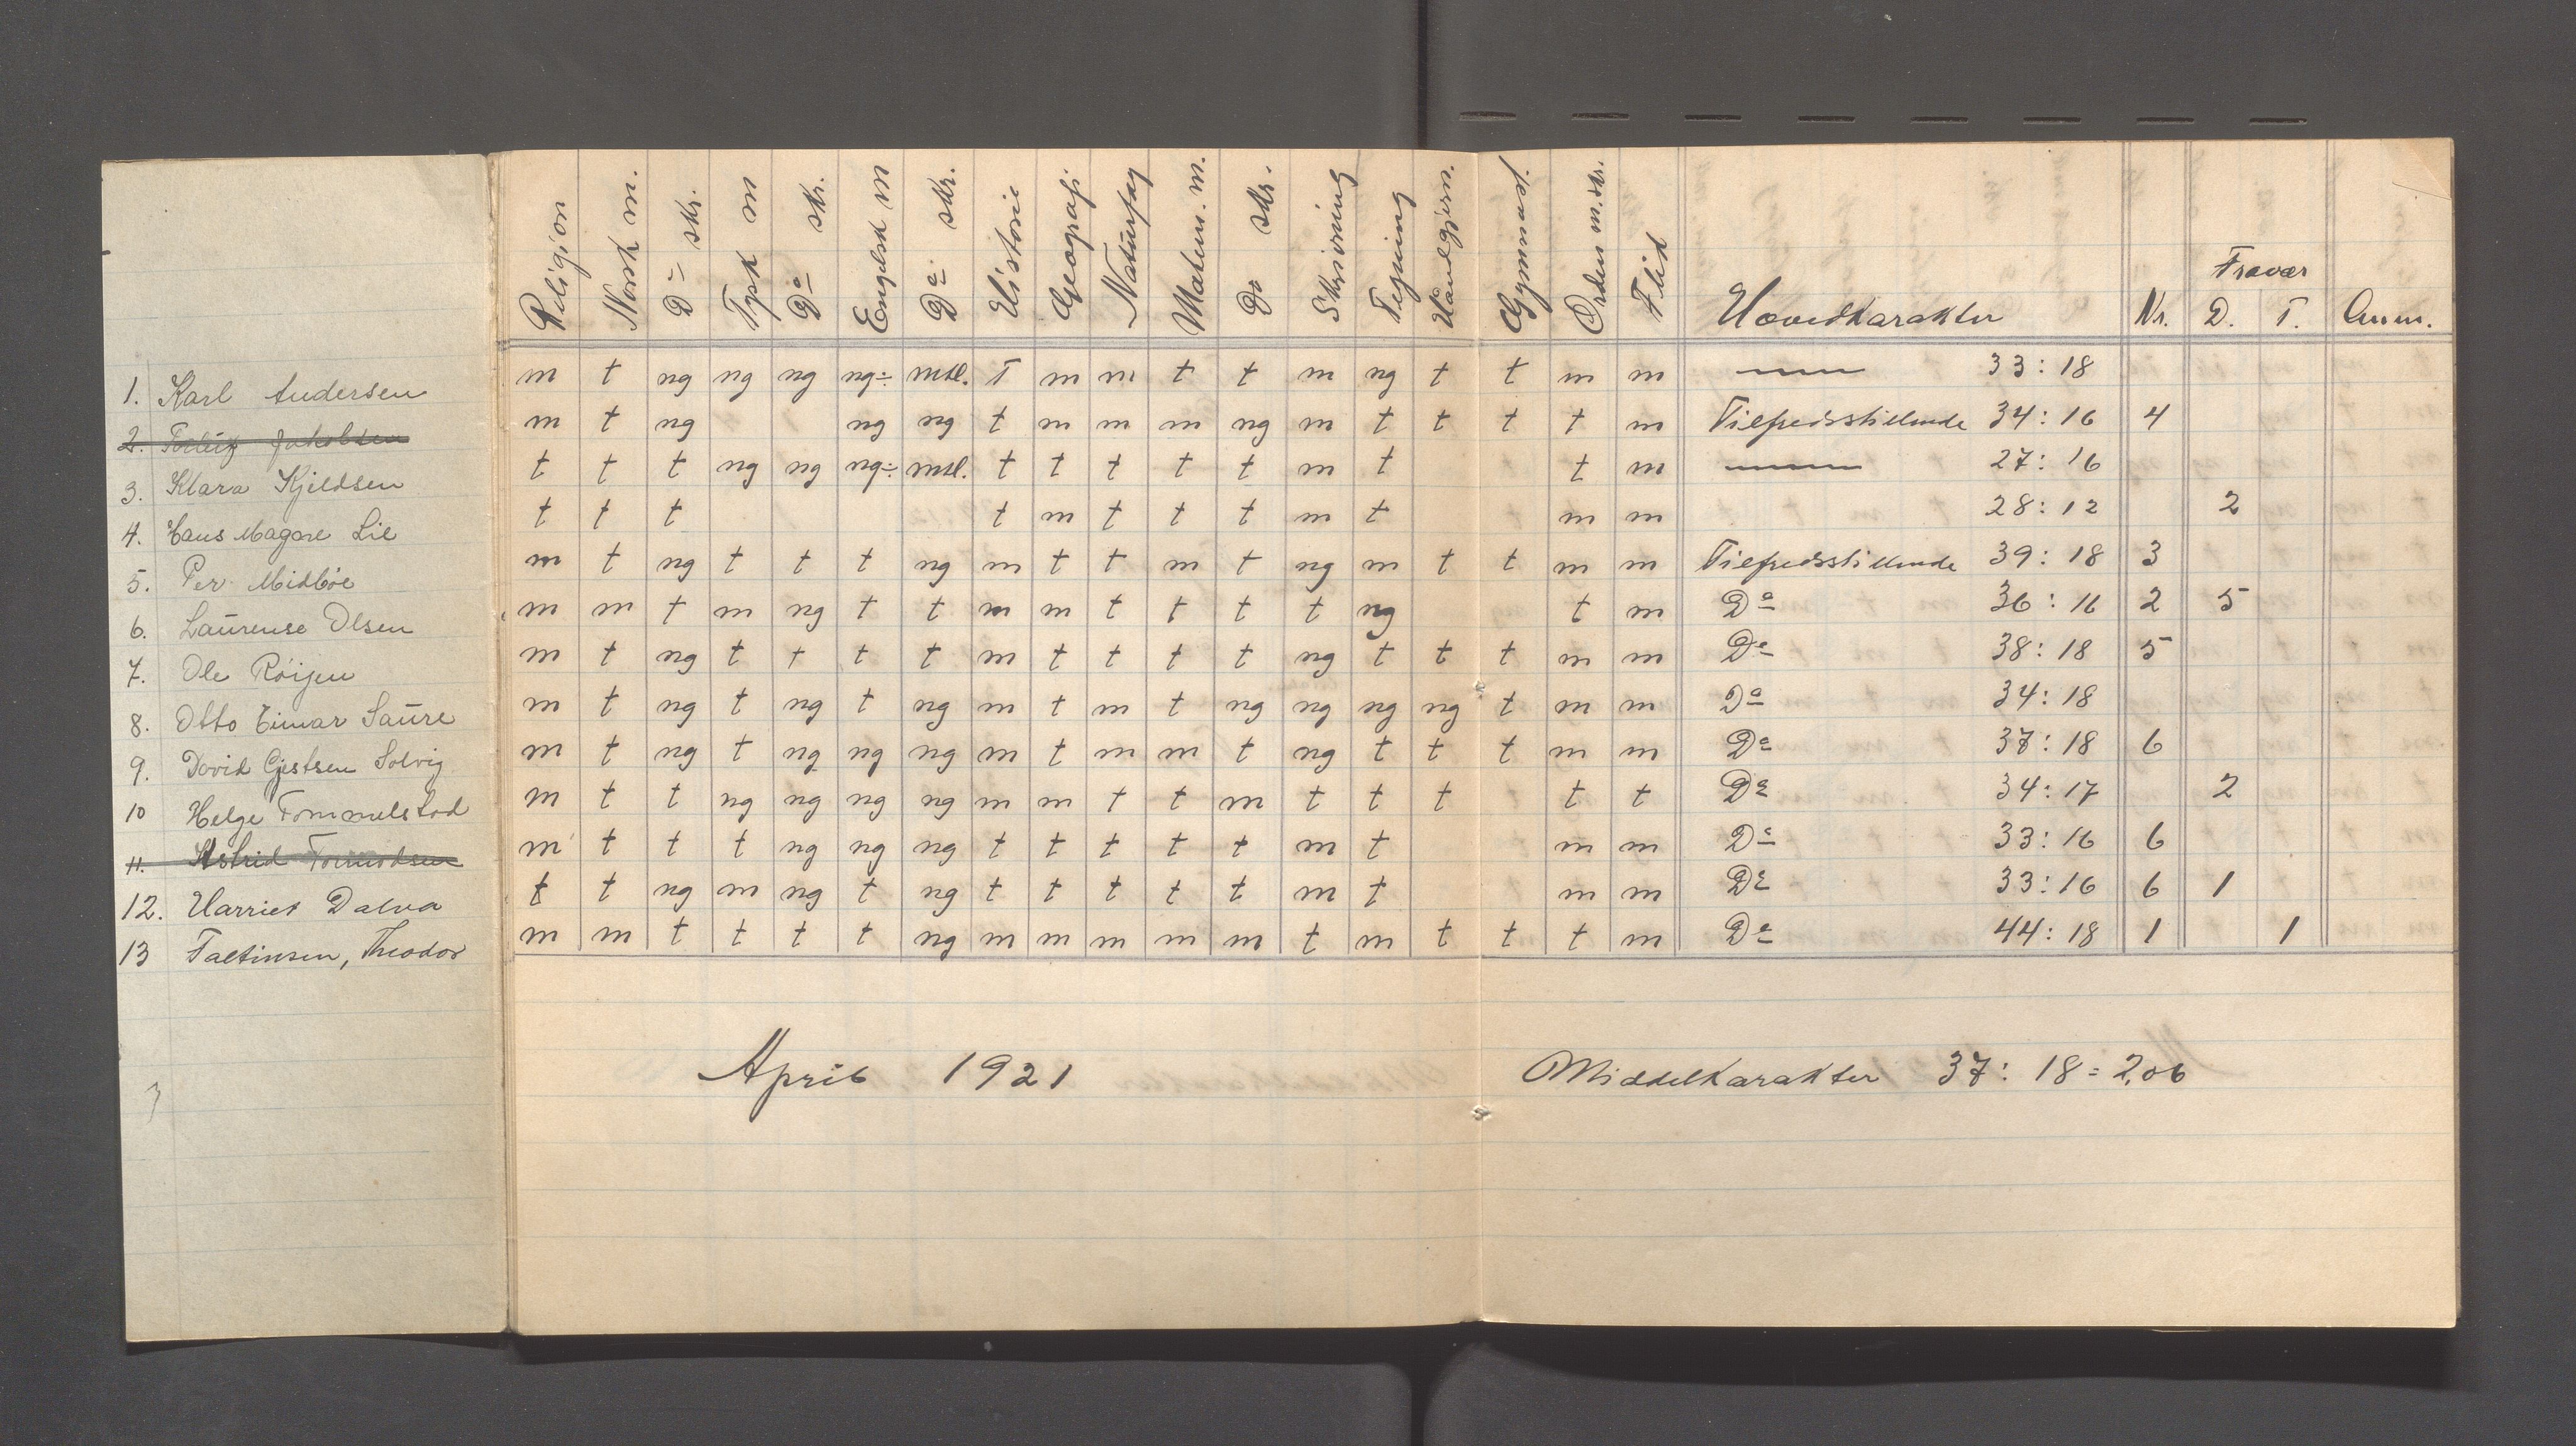 Religion Norsk m. Do skr. Tysk m Do skr. Engelsk m Do skr. Historie Geografi Naturfag Matem. m. Do skr. Skrivning Tegning Haandgjern. Gymnast. Orden m.skr. Flid Hovedkarakter Nr. Fravær D. T. Anm.
1. Karl Andersen m t ng ng ng ng÷ mtl. T m m t t m ng t t m m —— 33:18
2. Jakobsen m t ng ng ng t m m m ng m t t t t m Tilfredsstillende 34:16 4
3. Klara Kjeldsen t t t ng ng ng÷ mtl. t t t t t m t t m —— 27:16
4. Hans Magore Lie t t t t m t t t m t m m 28:12 2
5. Per Midbøe m t ng t t t ng m t t m t ng m t t m m Tilfredsstillende 39:18 3
6. Laurense Olsen m m t m ng t t m m t t t t ng t m Do 36:16 2 5
7. Ole Röijen m t ng t t t t m t t t t ng t t t m m Do 38:18 5
8. Otto Einar Saure m t ng t ng t ng m t m t ng ng ng ng t m m Do 34:18
9. David Gjestsen Solvig m t ng t ng ng ng m t m m t ng t t t m m Do 37:18 6
10 Helge Tommelstad m t t ng ng ng ng m m t t m t t t t t Do 34:17 2
11. Astrid Tormodsen m t t t ng ng ng t t t t t m t m m Do 33:16 6
12. Harriet Dalva t t ng m ng t ng t t t t t m t m m Do 33:16 6 1
13 Faltinsen, Theodor m m t t t t ng m m m m m t m t t t m Do 44:18 1 1
April 1921
Middelkarakter 37:18=2,06